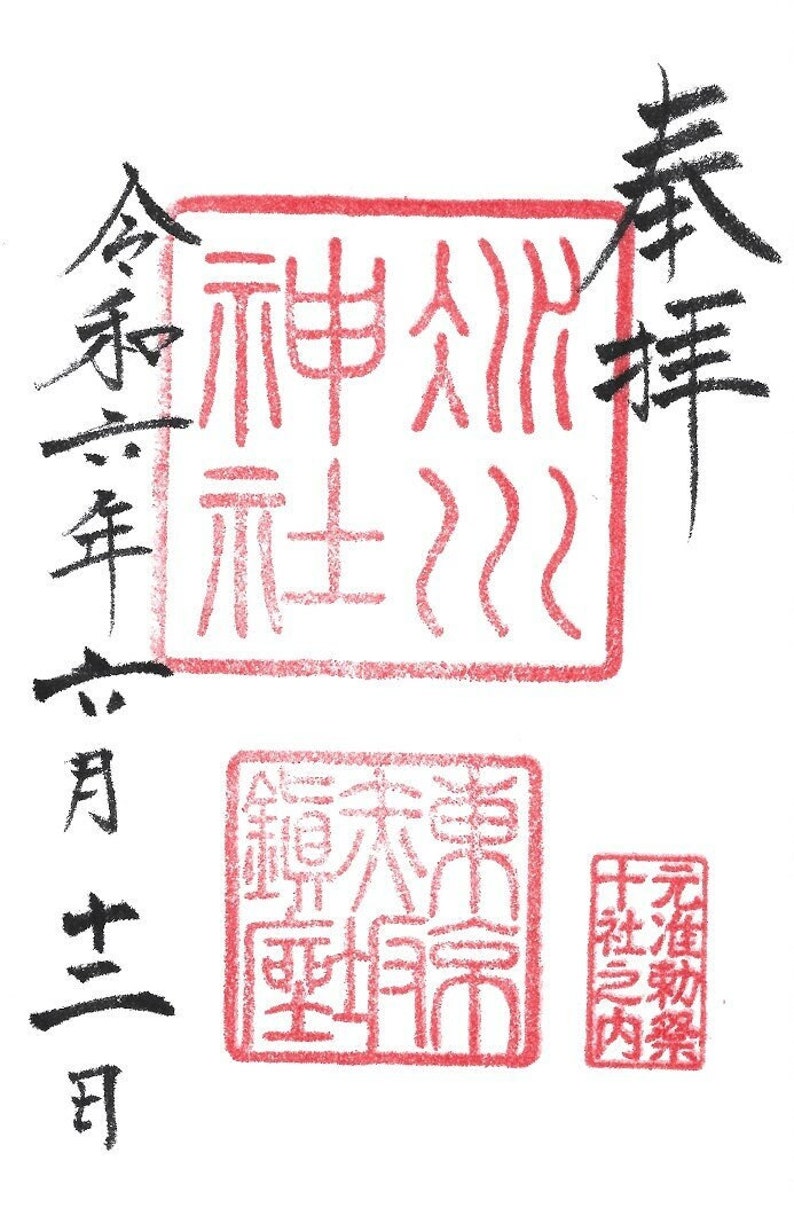 奉拝
氷川
神社
東京
赤坂
鎭座
元准勅祭
十社之内
令和六年六月十二日